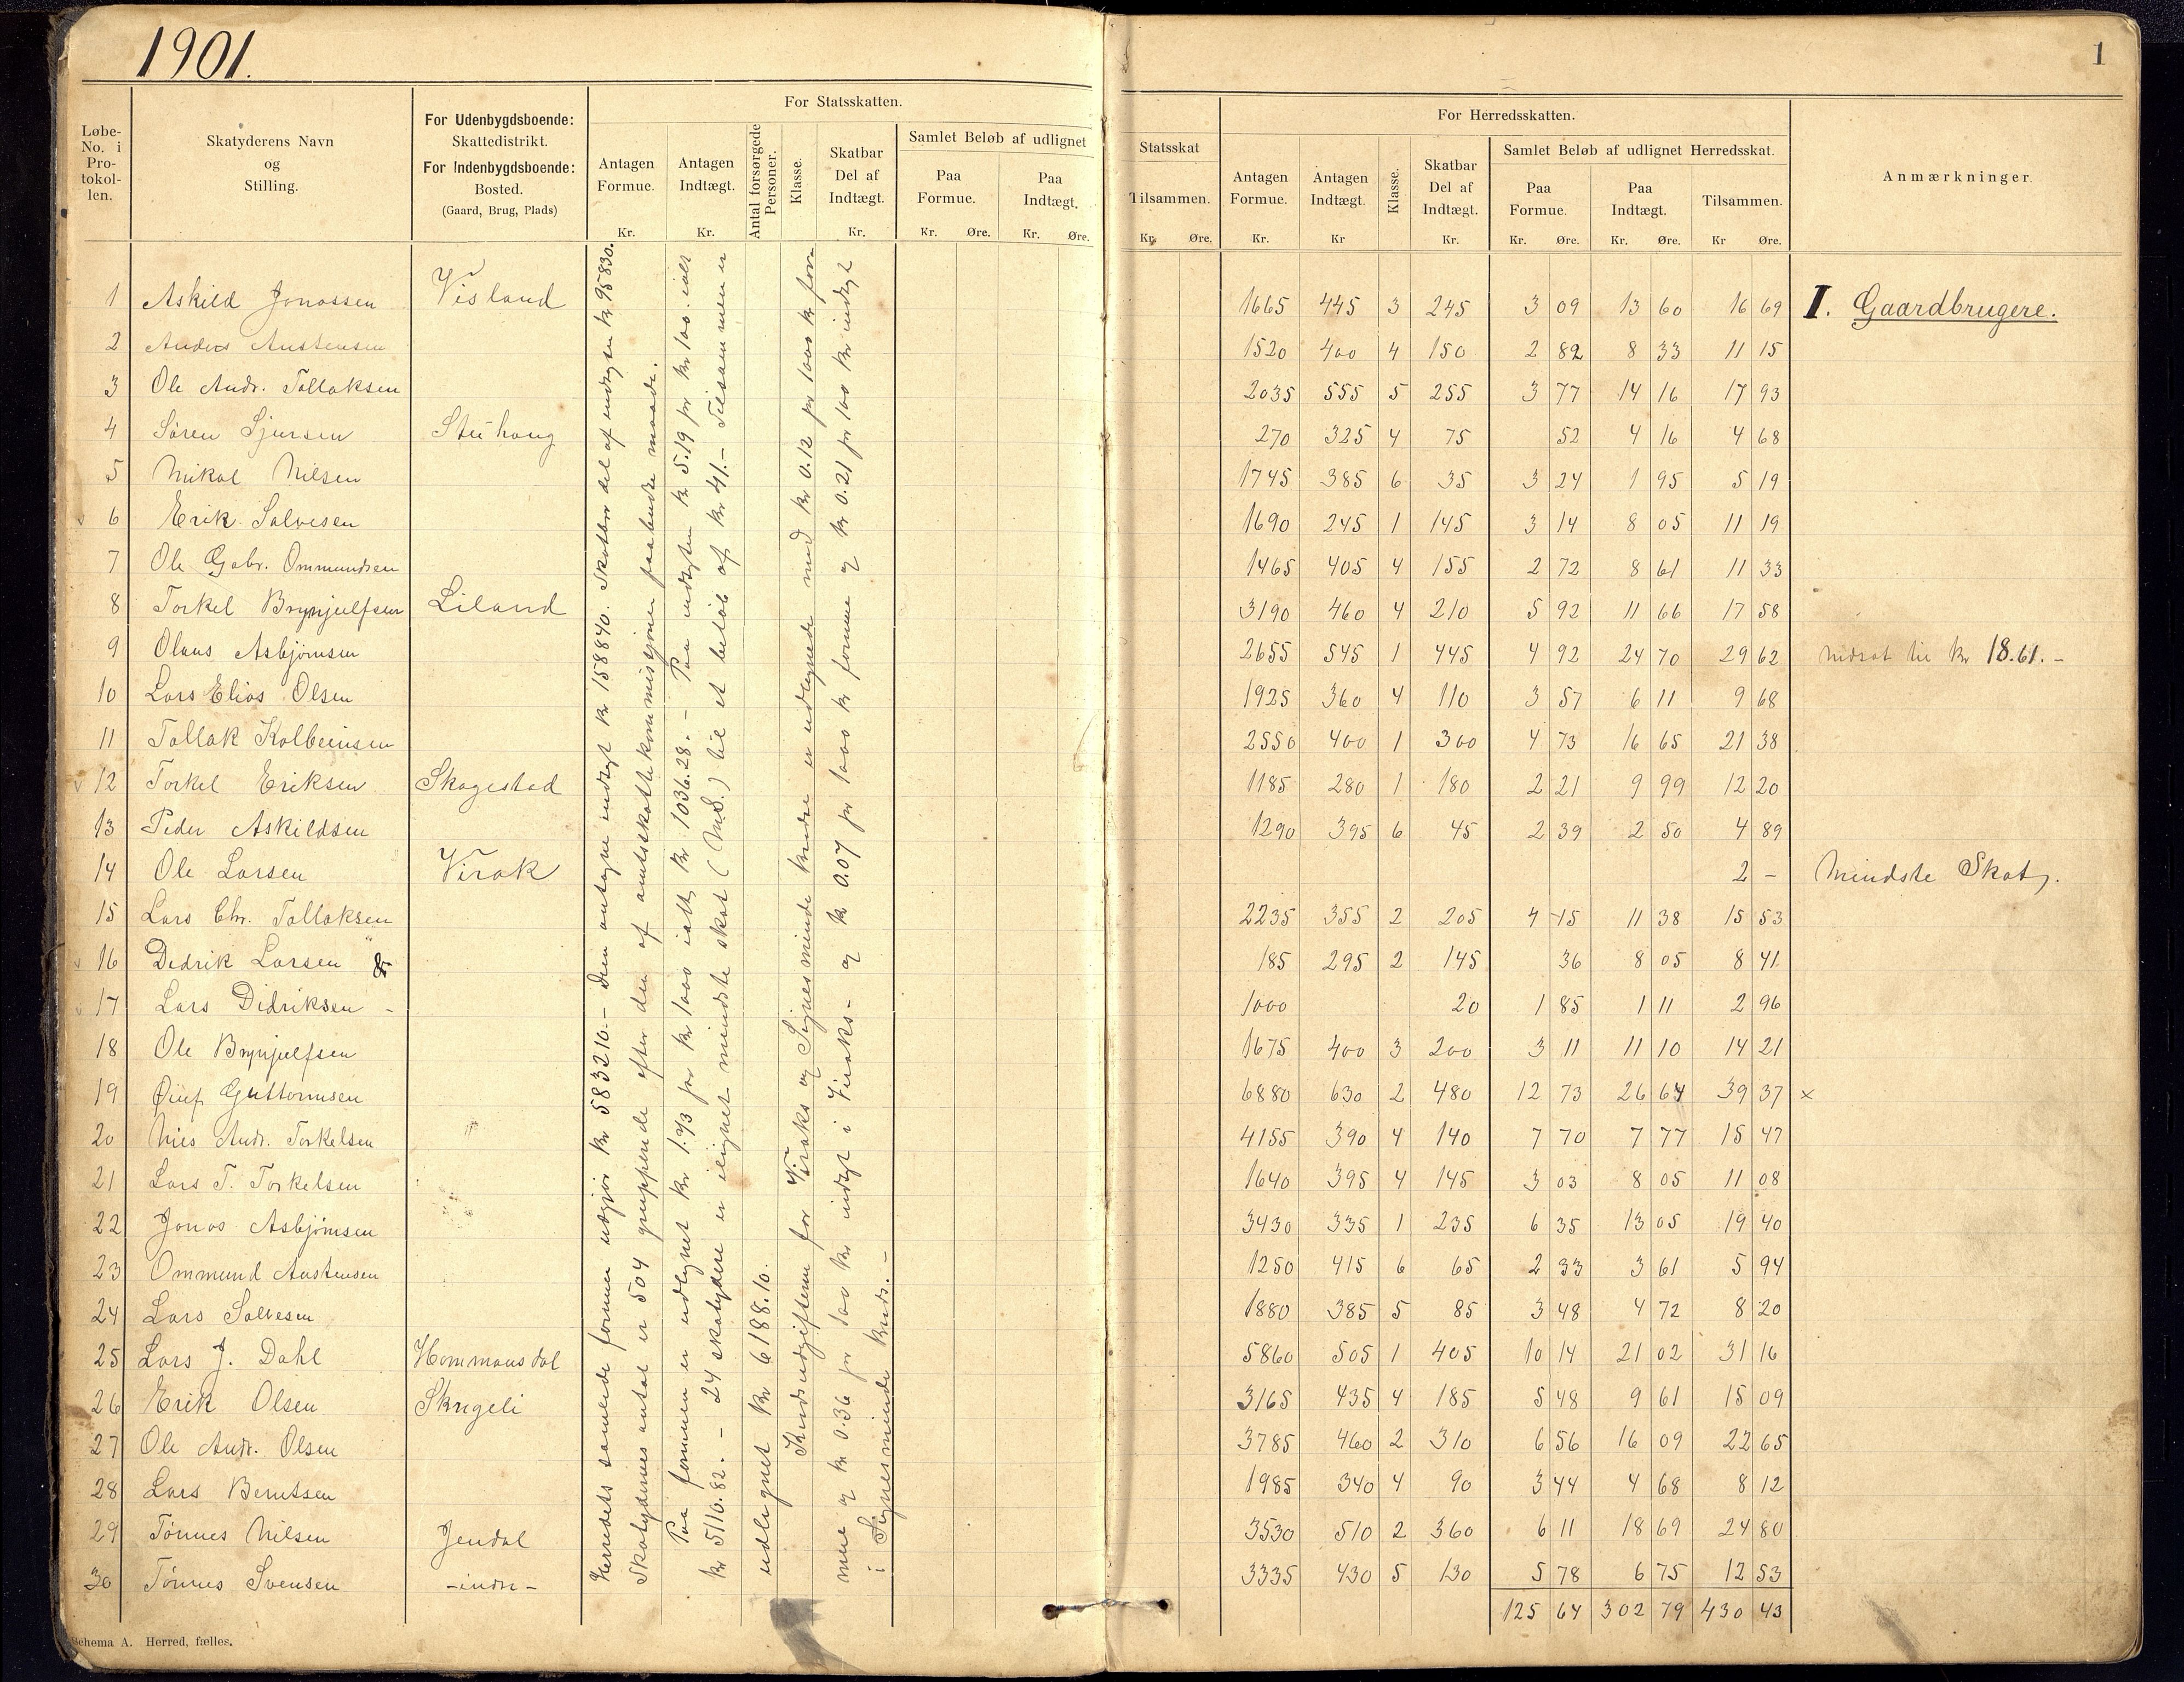 1901.
1
Løbe-No. i Protokollen.
Skatyderens Navn og Stilling.
For Udenbygdsboende: Skattedistrikt. For Indenbygdsboende: Bosted. (Gaard, Brug, Plads)
For Statsskatten.
Antagen Formue. Kr.
Antagen Indtægt. Kr.
Antal forsørgede Personer.
Klasse.
Skatbar Del af Indtægt. Kr.
Samlet Beløb af udlignet
Paa Formue. Kr. Øre.
Paa Indtægt. Kr. Øre.
Statsskat
Tilsammen. Kr. Øre.
For Herredsskatten.
Antagen Formue. Kr.
Antagen Indtægt. Kr
Klasse.
Skatbar Del af Indtægt. Kr.
Samlet Beløb af udlignet Herredsskat.
Paa Formue. Kr. Øre.
Paa Indtægt. Kr. Øre.
Tilsammen. Kr Øre.
Anmærkninger.
1 Askild Jonassen Visland 1665 445 3 245 3 09 13 60 16 69 I. Gaardbrugere.
2 Anders Austensen 1520 400 4 150 2 82 8 33 11 15
3 Ole Andr. Tollaksen 2035 555 5 255 3 77 14 16 17 93
4 Søren Sjursen Stuhaug 270 325 4 75 52 4 16 4 68
5 Mikal Nilsen 1745 385 6 35 3 24 1 95 5 19
6 Erik Salvesen 1690 245 1 145 3 14 8 05 11 19
7 Ole Gabr. Ommundsen 1465 405 4 155 2 72 8 61 11 33
8 Torkel Brynjulfsen Liland 3190 460 4 210 5 92 11 66 17 58
9 Olaus Asbjørnsen 2655 545 1 445 4 92 24 70 29 62 nedsat til kr 18.61.-
10 Lars Elias Olsen 1925 360 4 110 3 57 6 11 9 68
11 Tollak Kolbeinsen 2550 400 1 300 4 73 16 65 21 38
12 Torkel Eriksen Skagestad 1185 280 1 180 2 21 9 99 12 20
13 Peder Askildsen 1290 395 6 45 2 39 2 50 4 89
14 Ole Larsen Virak 2 - Mindste Skat.
15 Lars Chr. Tollaksen 2235 355 2 205 4 15 11 38 15 53
16 Didrik Larsen 185 295 2 145 36 8 05 8 41
17 Lars Didriksen - 1000 20 1 85 1 11 2 96
18 Ole Brynjulfsen 1675 400 3 200 3 11 11 10 14 21
19 Guttormsen 6880 630 2 480 12 73 26 64 39 37 ×
20 Nils Andr. Torkelsen 4155 390 4 140 7 70 7 77 15 47
21 Lars T. Torkelsen 1640 395 4 145 3 03 8 05 11 08
22 Jonas Asbjørnsen 3430 335 1 235 6 35 13 05 19 40
23 Ommund Austensen 1250 415 6 65 2 33 3 61 5 94
24 Lars Salvesen 1880 385 5 85 3 48 4 72 8 20
25 Lars J. Dahl Hommansdal 5860 505 1 405 10 14 21 02 31 16
26 Erik Olsen Skrigeli 3165 435 4 185 5 48 9 61 15 09
27 Ole Andr. Olsen 3785 460 2 310 6 56 16 09 22 65
28 Lars Berntsen 1985 340 4 90 3 44 4 68 8 12
29 Tønnes Nilsen Jendal 3530 510 2 360 6 11 18 69 24 80
30 Tønnes Svensen -indre- 3335 430 5 130 5 78 6 75 12 53
125 64 302 79 430 43
Herredets samlede formue udgjør kr 583210.- Den antagne indtægt kr 158840. Skatbar del af indtægten kr 95830.
Skatydernes antal er 504 grupperede efter den af amtsskattekommissionen paabudte maade.
Paa formuen er udlignet kr 1.73 pr kr 1000 ialt kr 1036.28.- Paa indtægten kr 5.19 pr kr 100 ialt
kr 5110.82.- 24 skatydere er ilignet mindste skat (M.S.) til et beløb af kr 41.- Tilsammen er
udlignet kr 6188.10.
Kredsudgifterne for Viraks og Signesminde kredse er udlignede med kr 0.12 pr 1000 kr formue og kr 0.36 pr 100 kr indtægt i Viraks- og kr 0.07 pr 1000 kr formue og kr 0.21 pr 100 kr indtægt
i Signesminde kreds.-
Schema A. Herred, fælles.